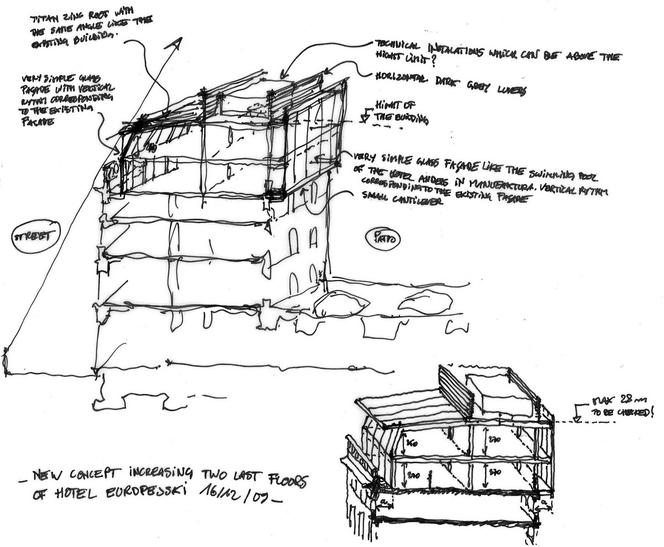 TITAN ZINC ROOF WITH
THE SAME ANGLE LIKE THE
EXISTING BUILDING.
VERY SIMPLE GLASS
FAÇADE WITH VERTICAL
RYTHM CORRESPONDING
TO THE EXISTING
FACADE
TECHNICAL INSTALATIONS WHICH CAN BE ABOVE THE
HIGHT LIMIT?
HORIZONTAL DARK GREY LUVERS
HIMIT OF
THE BUILDING
VERY SIMPLE GLASS FAÇADE LIKE THE SWIMMING POOL
OF THE HOTEL ANDELS IN MANUFAKTURA. VERTICAL RYTHM
CORRESPONDING TO THE EXISTING FAÇADE
SMALL CANTILEVER
STREET
PATIO
MAX 28 m
TO BE CHECKED!
270
270
_ NEW CONCEPT INCREASING TWO LAST FLOORS
OF HOTEL EUROPEJSKI 16/12/09 _